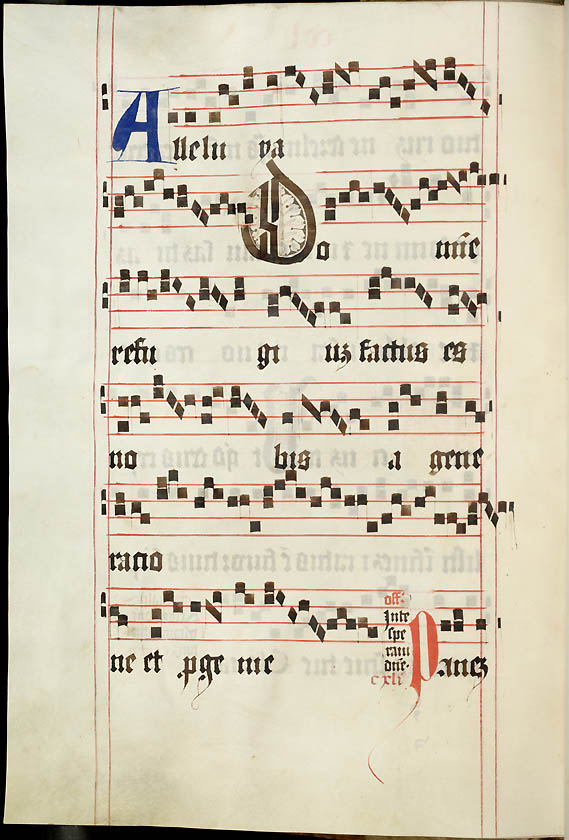 Allelu ya
Do mīe
refu gi uʒ factus es
no bis a gene
racio
ne et ꝓge nie
off.
Inte
spe
raui
dn̄e
cxli
Paneʒ